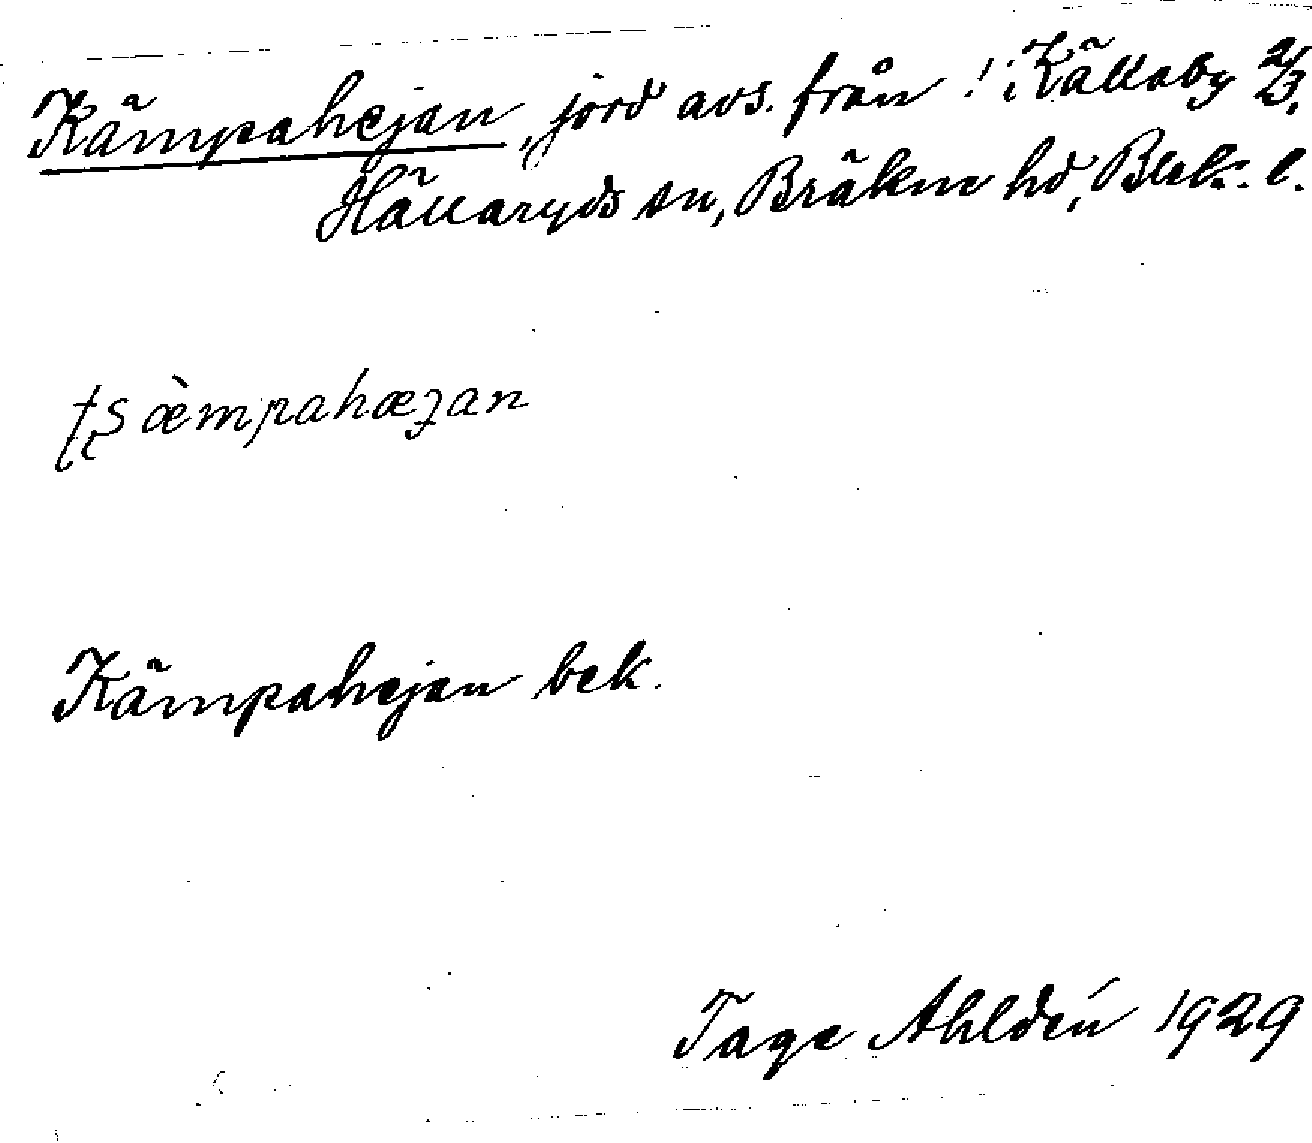 Kämpahejan, jord avs. från ! Källaby 2/3,
Hällaryds sn, Bräkne hd, Blek. l.
tʂæ̀mpahæjan
Kämpahejan bek.
Tage Ahldén 1929